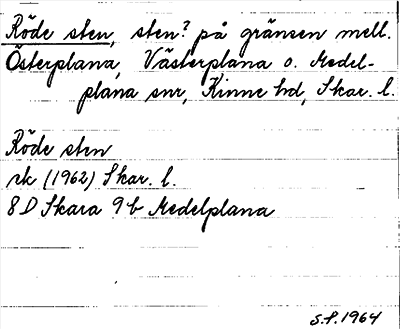 Röde sten, sten? på gränsen mell.
Österplana, Västerplana o. Medel-
plana snr, Kinne hd, Skar. l.
Röde sten
rk (1962) Skar. l.
8 D Skara 9 b Medelplana
S.P. 1964